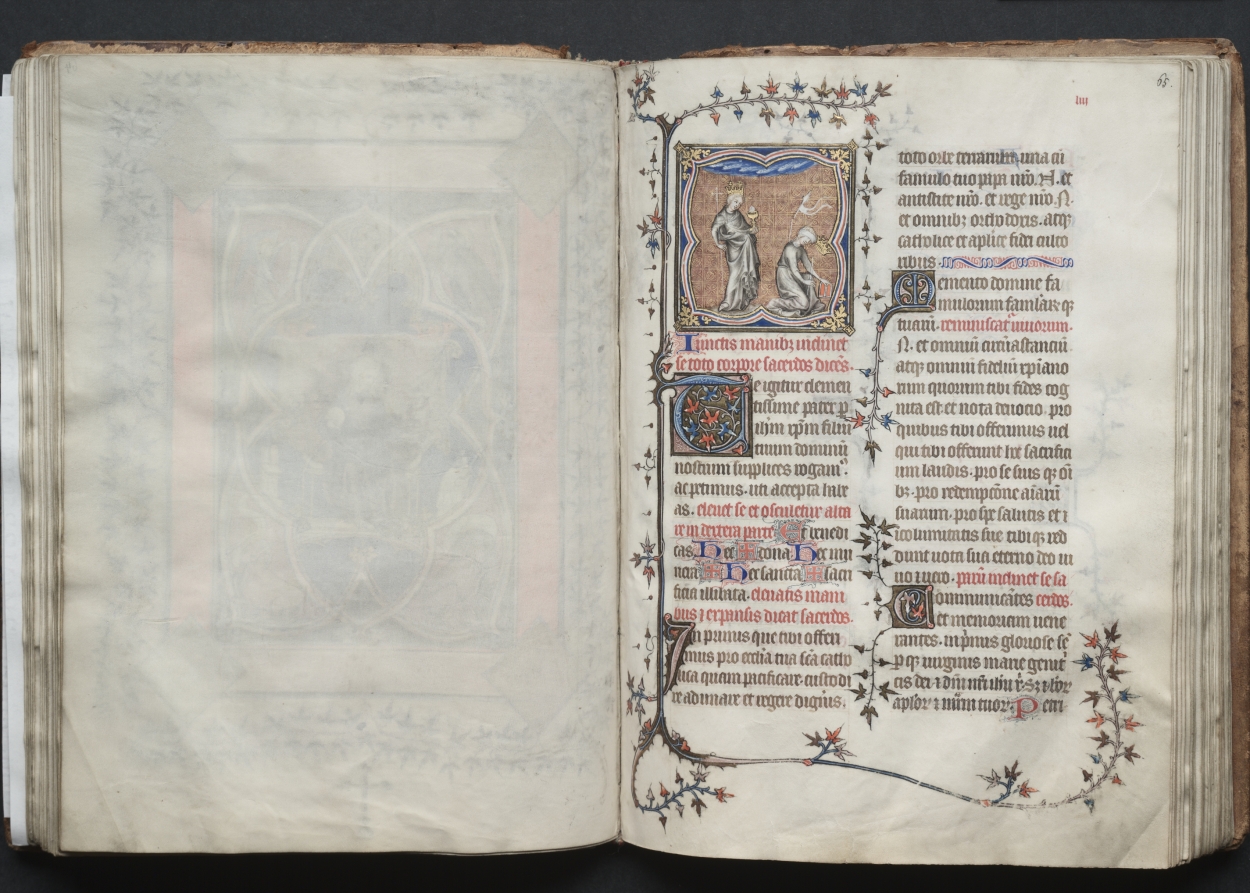 65.
iiii
Iunctis manibz inclinet
se toto corpore sacerdos dicēs.
Te igitur clemen
tissime pater p
ihm xpm filiū
tuum dominū
nostrum supplices rogam⁹.
ac petimus. uti accepta habe
as. eleuet se et osculetur alta
re in dextera parte Et benedi
cas Hec ✠ dona Hec mu
nera ✠ Hec sancta ✠ sacri
ficia illibata. eleuatis mani
bus ⁊ expansis dicat sacerdos.
In primis que tibi offeri
mus pro ecclia tua sca catho
lica quam pacificare. custodi
re adunare et regere digneris.
toto orbe terrarum. una cū
famulo tuo papa nro. N. et
antistite nro. et rege nro. N.
et omnibz ortodoxis. atqz
catholice et aplice fidei culto
ribus.
Memento domine fa
mulorum famular qz
tuarū. reminiscat uiuorum.
N. et omniū circūastanciū
atqz omniū fideliū xpiano
rum quorum tibi fides cog
nita est et nota deuocio. pro
quibus tibi offerimus uel
qui tibi offerunt hoc sacrifici
um laudis. pro se suis qz oī
bz. pro redempcōne aīarū
suarum. pro spe salutis et ī
columitatis sue tibi qz red
dunt uota sua eterno deo ui
uo ⁊ uero. parū inclinet se sa
Communicātes cerdos.
et memoriam uene
rantes. inprimis gloriose sē
p qz uirginis marie genit
cis dei ⁊ dni nri ihu x. Sz ⁊ btor
aplor ⁊ mrm tuor. Petri